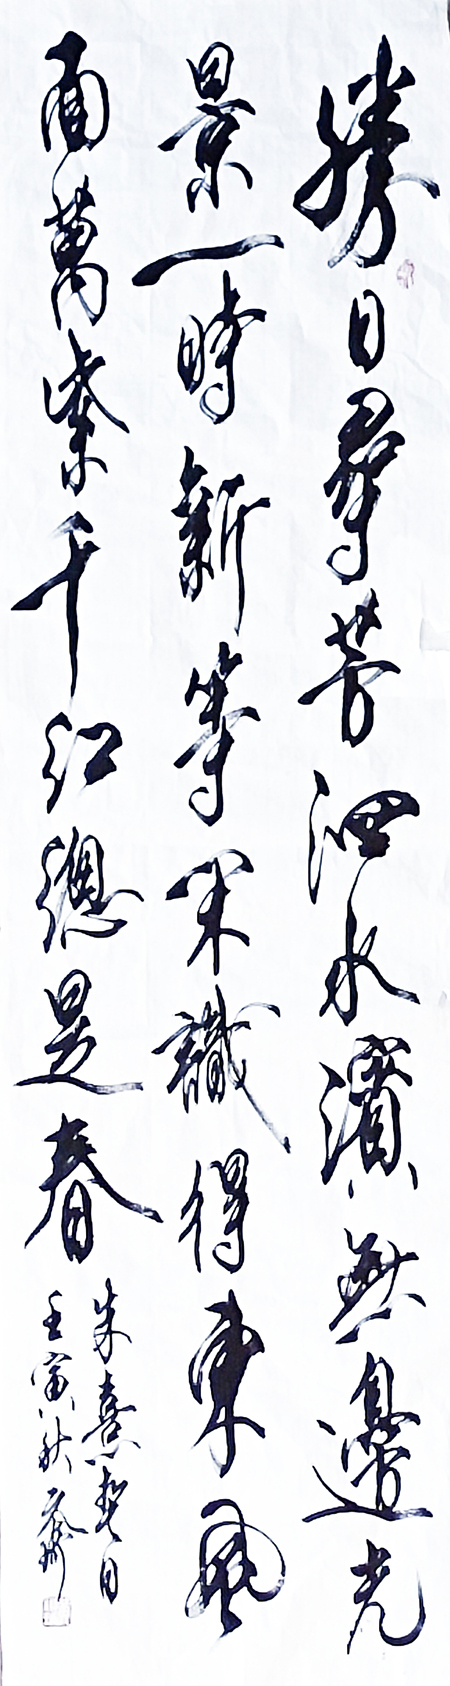 勝日尋芳泗水濱無邊光
景一時新等閑識得東風
面萬紫千紅總是春
朱熹春日
壬寅秋